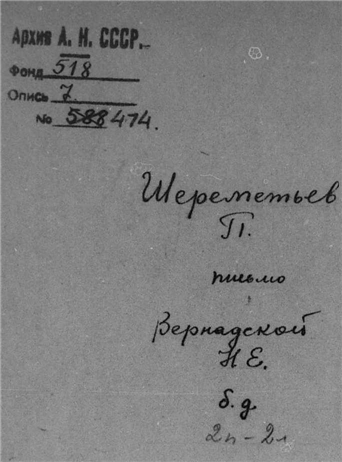 Архив А. Н. СССР.
Фонд 518
Опись 7
№ 588 474.
Шереметьев
П.
письмо
Вернадской
Н Е.
б. д
2п - 2л